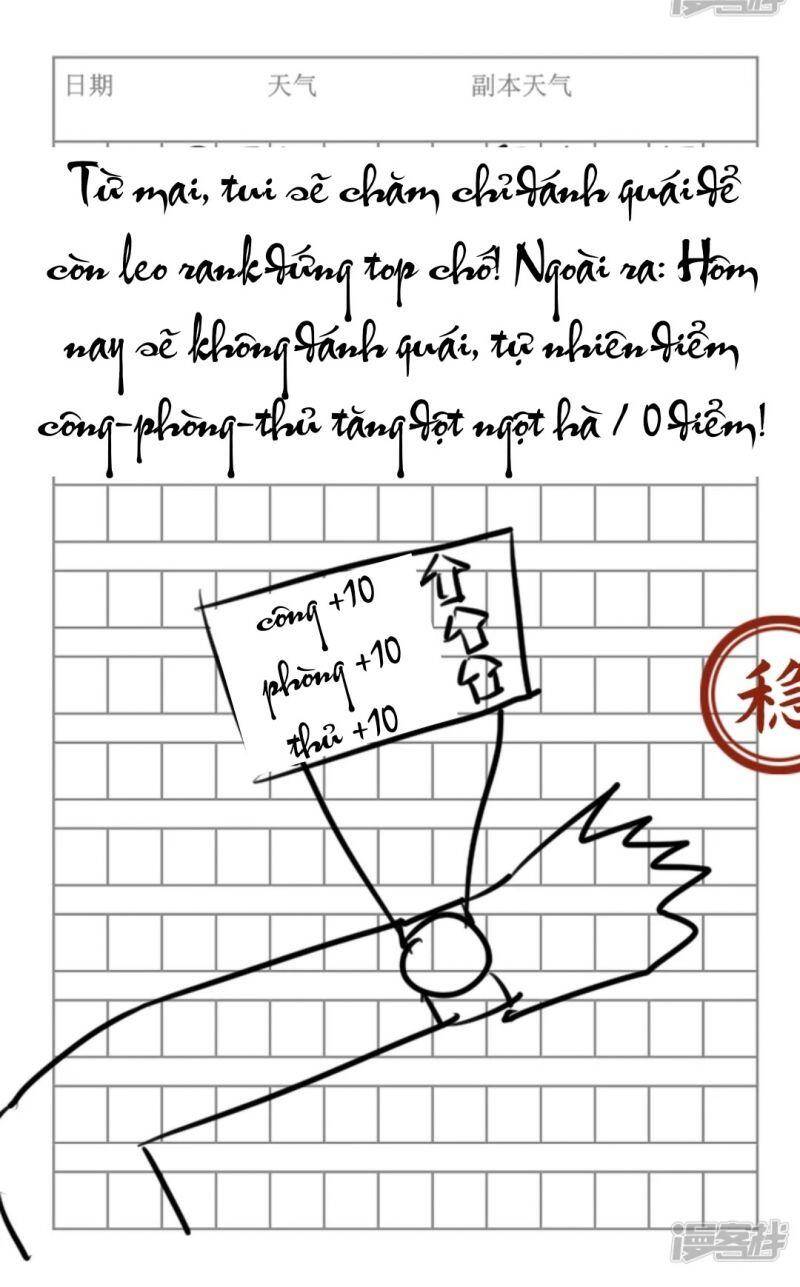 漫客栈
日期 天气 副本天气
Từ mai, tui sẽ chăm chỉ đánh quái để
còn leo rank đứng top chớ! Ngoài ra: Hôm
nay sẽ không đánh quái, tự nhiên điểm
công-phòng-thủ tăng đột ngột hà / 0 điểm!
công +10
phòng +10
thủ +10
稳
漫客栈